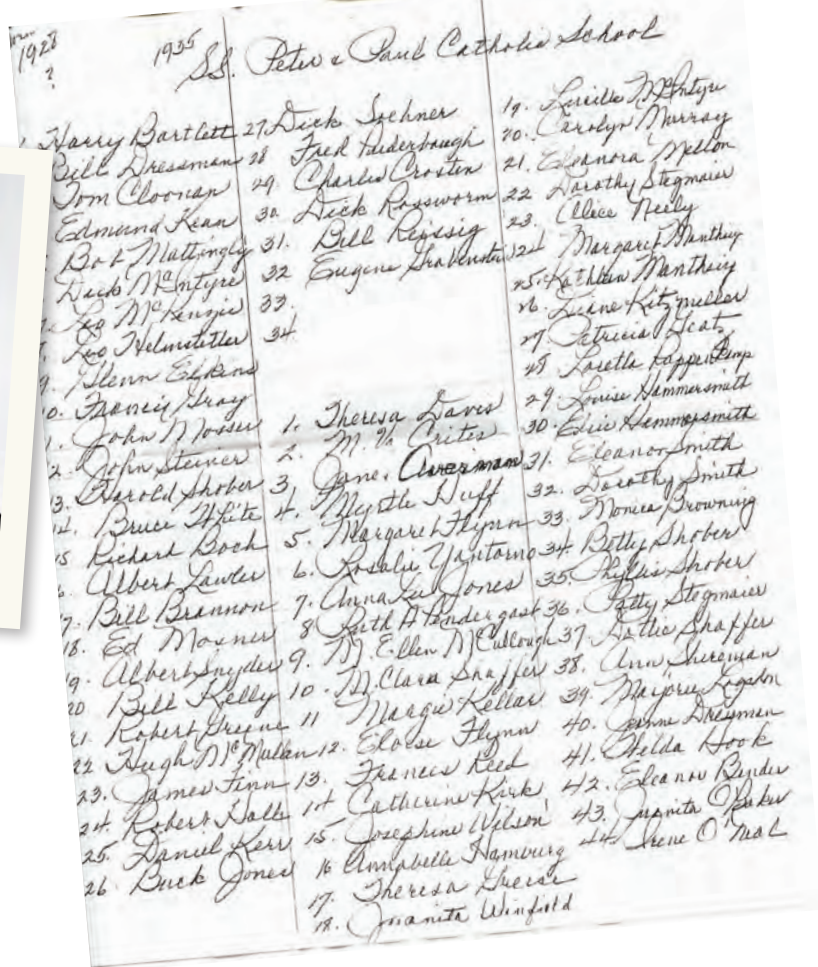 1928
?
1935
SS. Peter & Paul Catholic School
Harry Bartlett
Bill Dressman
Tom Cloonan
Edmund Kean
Bob Mattingly
Dick McIntyre
Leo McKenzie
Leo Helmstetter
9. Glenn Elkins
10. Francis Gray
1. John Mosser
2. John Steiner
13. Harold Shober
14. Bruce White
15 Richard Bock
6. Albert Lawler
17. Bill Brannon
18. Ed Mosner
19. Albert Snyder
20 Bill Kelly
21. Robert Greene
22 Hugh McMullan
23. James Finn
24. Robert
25. Daniel Kerr
26. Buck Jones
27. Dick Lochner
28 Fred Puderbaugh
29. Charles Crosten
30. Dick Rossworm
31. Bill Reissig
32 Eugene Grabenstein
33.
34.
1. Theresa Davis
2. M. Va Crites
3. Jane
4. Myrtle Huff
5. Margaret Flynn
6. Rosalie Yantorno
7. Anna Jones
8 Ruth A Pendergast
9. M. Ellen McCullough
10. M. Clara Shaffer
11 Margie Kellar
12. Eloise Flynn
13. Frances Reed
14 Catherine Kirk
15. Josephine Wilson
16 Annabelle Hamburg
17. Theresa Greise
18. Juanita Winfield
19. Lucille McIntyre
20. Carolyn Murray
21. Eleanora Mellon
22 Dorothy Stegmaier
23. Alice Neely
24 Margaret Manthiy
25. Kathleen Manthiy
26. Diane Kitzmiller
27. Patricia
28 Loretta
29. Louise Hammersmith
30. Hammersmith
31. Eleanor Smith
32. Dorothy Smith
33. Monica Browning
34. Betty Shober
35. Phyllis Shober
36. Patty Stegmaier
37. Hattie Shaffer
38. Ann
39. Marjorie Logsdon
40. Jeanne Dressman
41. Hook
42. Eleanor Bender
43. Juanita
44. Irene O'Neal